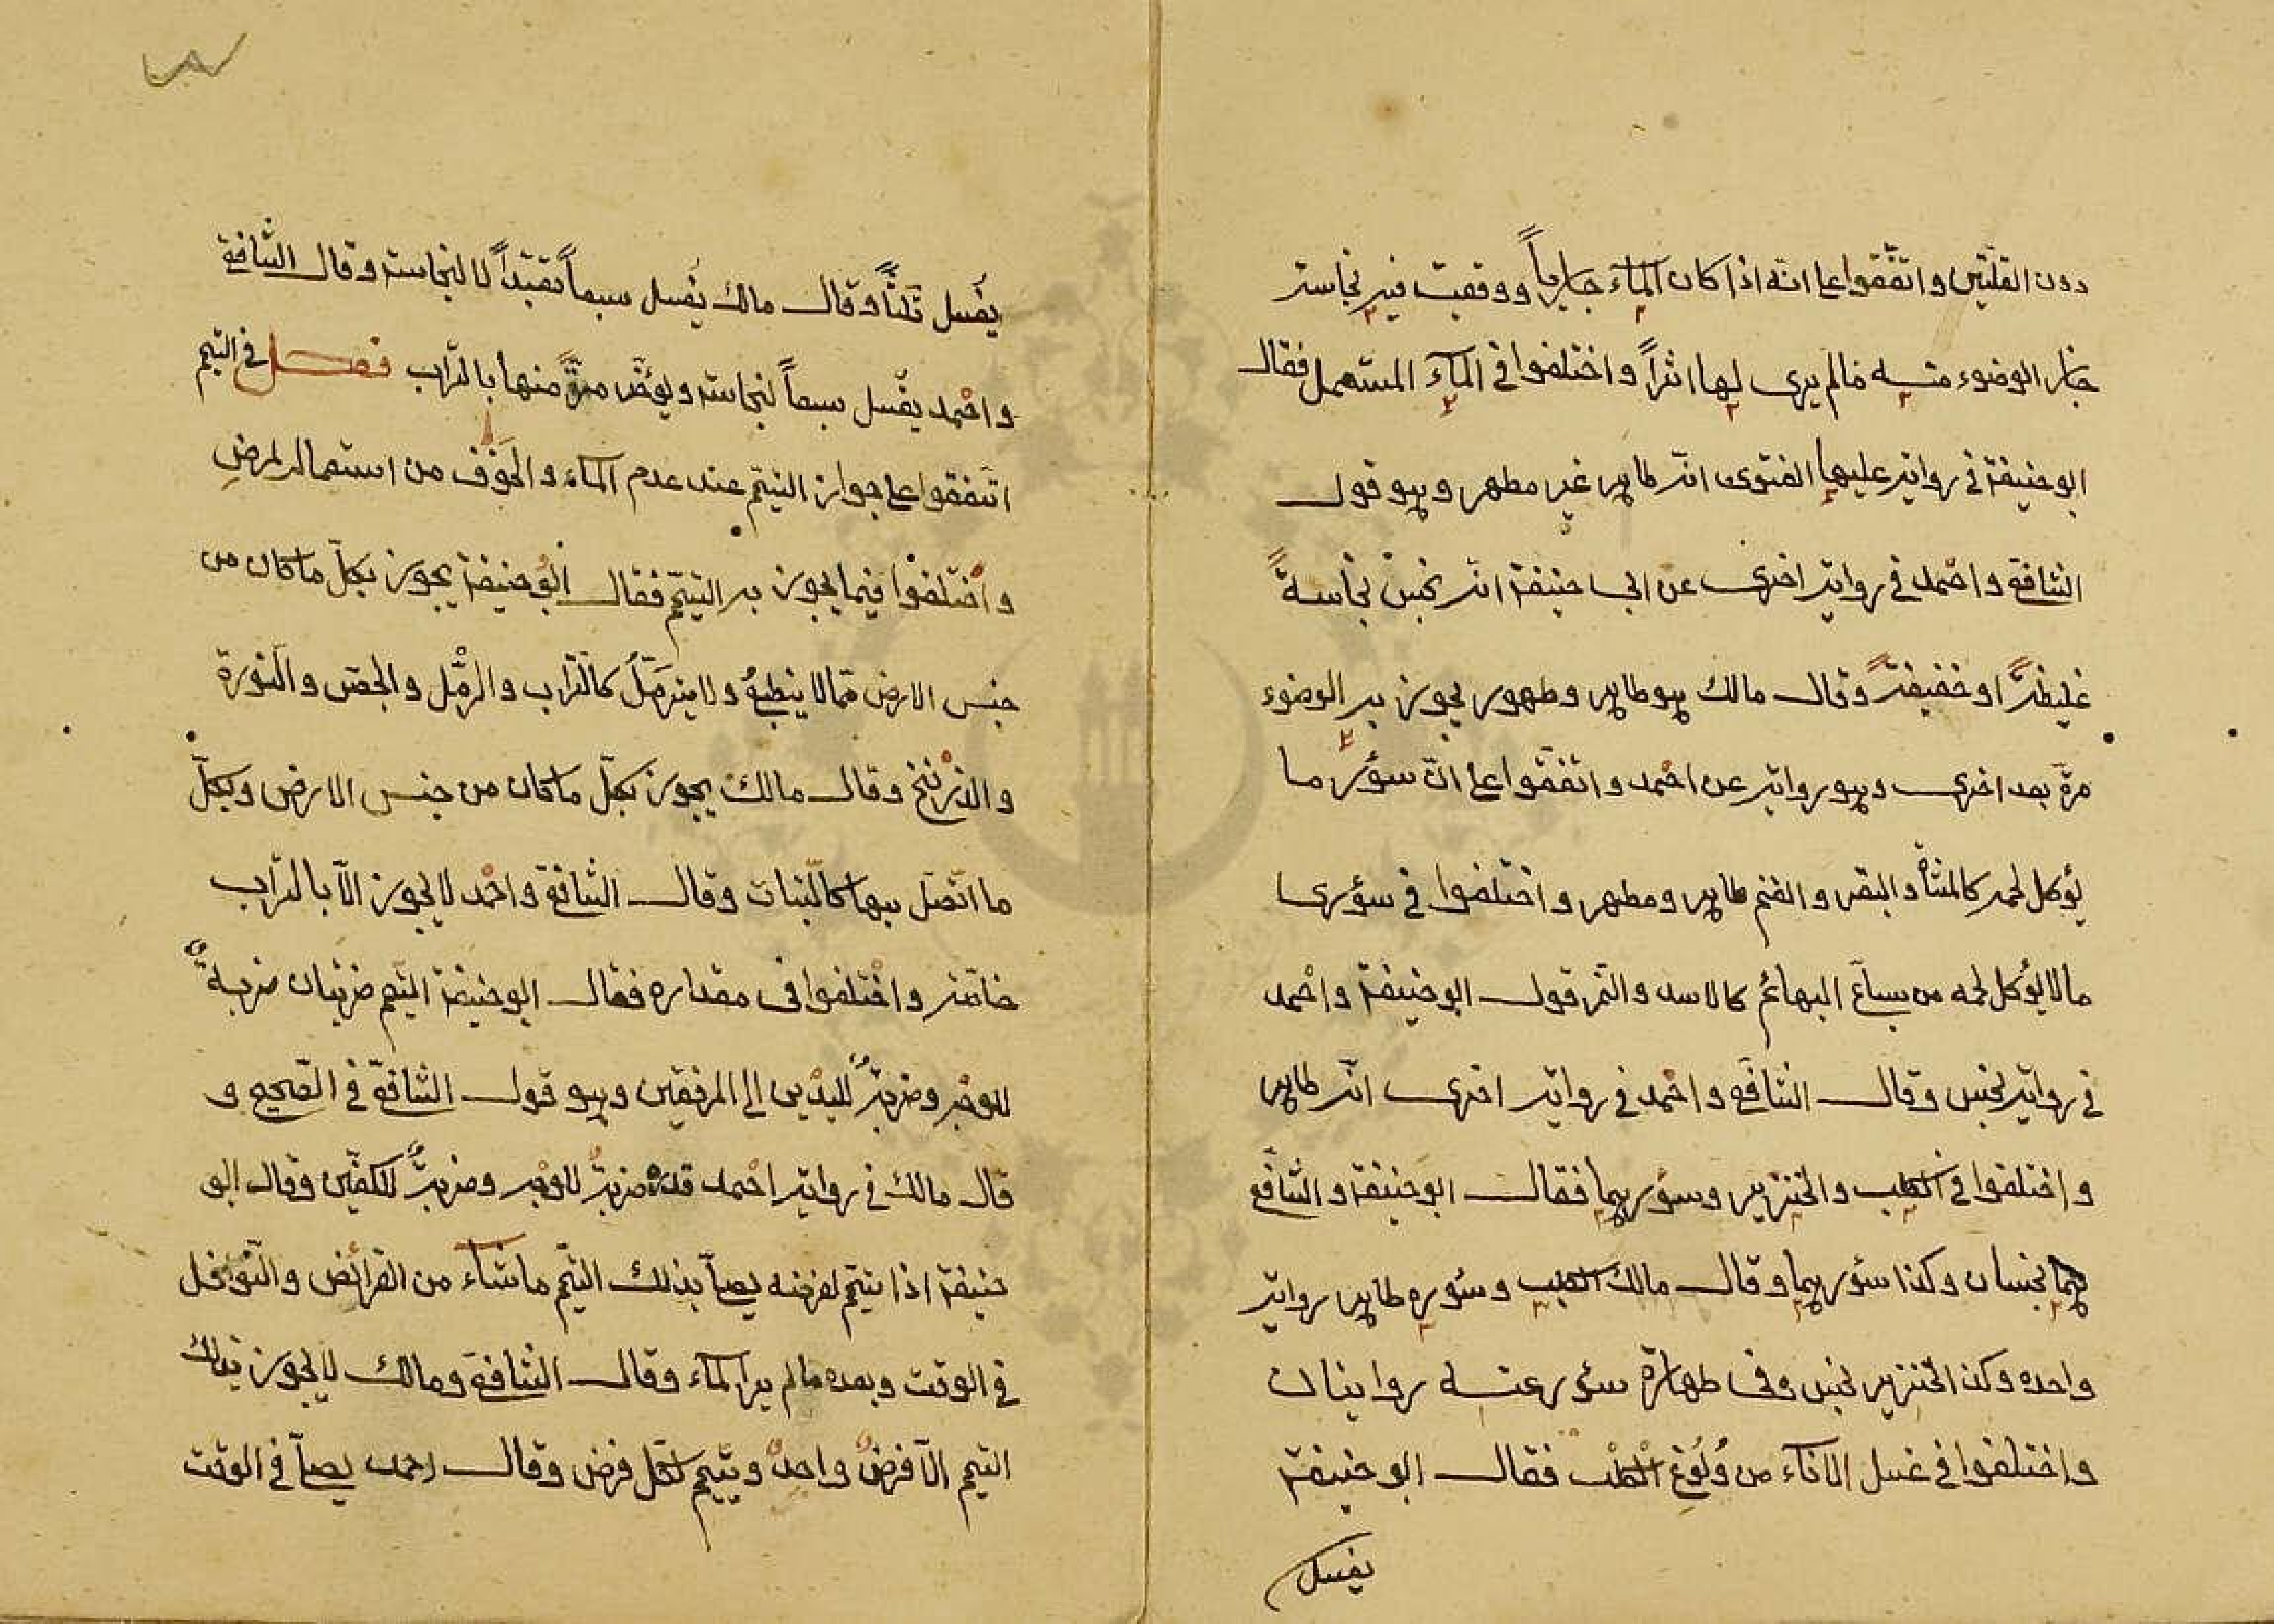 دون القلّتين واتّفقوا على انّه اذا كان المآء جارياً ووقعت فيه نجاسة
جاز الوضوء منه فالم يرى لها اثراً واختلفوا في المآء المستعمل فقال
ابو حنيفة في رواية عليها الفتوى انّه طاهر غير مطهر وهو قول
الشافعي واحمد في رواية اخرى عن ابي حنيفة انّه نجس نجاسةً
غليظةً او خفيفةً وقال مالك هو طاهر وطهور يجوز به الوضوء
مرّة بعد اخرى وهو رواية عن احمد واتّفقوا على انّ سؤر ما
يؤكل لحمه كالشأة والبقر والغنم طاهر ومطهر واختلفوا في سؤرى
مالا يؤكل لحمه من سباع البهائم كالاسد والنّمر قول ابو حنيفة واحمد
في رواية نجس وقال الشافعي واحمد في رواية اخرى انّه طاهر
واختلفوا في الكلب والخنزير وسؤرهما فقال ابو حنيفة والشافعي
هما نجسان وكذا سؤرهما وقال مالك الكلب وسؤره طاهر رواية
واحده وكذا الخنزير نجس وفى طهارة سؤر عنه روايتان
واختلفوا في غسل الاناء من وُلُوغ الكلب فقال ابو حنيفة
يغسل
يغسل ثلثاً وقال مالك يغسل سبعاً تعبّداً لا لنجاسته وقال الشافعي
واحمد يغسل سبعاً لنجاسته ويعفّر مرّةً منها بالتّراب فصل في التيمم
اتّفقوا على جواز التيمّم عند عدم المآء والخوف من استعماله لمرض
واختلفوا فيما يجوز به التيمّم فقال ابو حنيفة يجوز بكلّ ما كان من
جنس الارض ممّا لا ينطبع ولا يترمّل كالتّراب والرّمل والجصّ والنّورة
والزرنيخ وقال مالك يجوز بكلّ ما كان من جنس الارض وبكلّ
ما اتّصل بها كالنّبات وقال الشافعي واحمد لا يجوز الّا بالتّراب
خاصّة واختلفوا في مقداره فقال ابو حنيفة التيمم ضربتان ضربةٌ
للوجه وضربةٌ لليدين الى المرفقين وهو قول الشافعيّ في الصّحيح و
قال مالك في رواية احمد قدره ضربةٌ للوجه وضربةٌ للكفّين وقال ابو
حنيفة اذا تيمّم لفرضه يصلّ بذلك التيمّم ما شآء من الفرائض والنّوافل
في الوقت وبعده مالم ير المآء وقال الشافعي ومالك لا يجوز بذلك
التيمم الّا فرضٌ واحدٌ ويتيمم لكلّ فرض وقال احمد يصلّ في الوقت